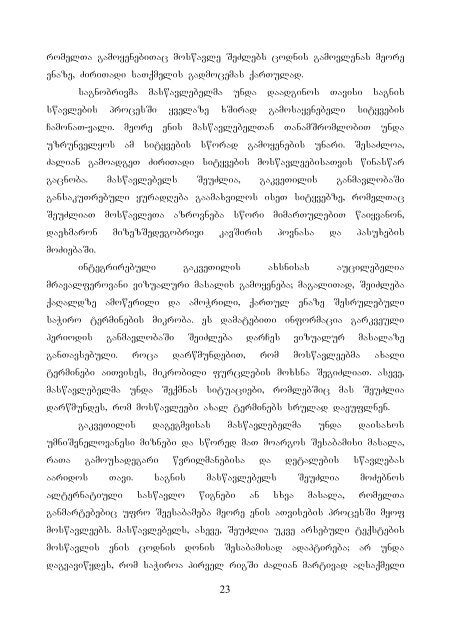 რომელთა გამოყენებითაც მოსწავლე შეძლებს ცოდნის გამოვლენას მეორე
ენაზე, ძირითადი სათქმელის გადმოცემას ქართულად.
საგნობრივმა მასწავლებელმა უნდა დაადგინოს თავისი საგნის
სწავლების პროცესში ყველაზე ხშირად გამოსაყენებელი სიტყვების
ჩამონათვალი. მეორე ენის მასწავლებელთან თანამშრომლობით უნდა
უზრუნველყოს ამ სიტყვების სწორად გამოყენების უნარი. შესაძლოა,
ძალიან გამოადგეთ ძირითადი სიტყვების მოსწავლეებისათვის წინასწარ
გაცნობა. მასწავლებელს შეუძლია, გაკვეთილის განმავლობაში
განსაკუთრებული ყურადღება გაამახვილოს ისეთ სიტყვებზე, რომელთაც
შეუძლიათ მოსწავლეთა აზროვნება სწორი მიმართულებით წაიყვანონ,
დაეხმარონ მიზეზშედეგობრივი კავშირის პოვნასა და პასუხების
მოძიებაში.
ინტეგრირებული გაკვეთილის ახსნისას აუცილებელია
მრავალფეროვანი ვიზუალური მასალის გამოყენება; მაგალითად, შეიძლება
ქაღალდზე ამოწერილი და ამოჭრილი, ქართულ ენაზე შესრულებული
საჭირო ტერმინების მიკრობა. ეს დამატებითი ინფორმაცია გარკვეული
პერიოდის განმავლობაში შეიძლება დარჩეს ვიზუალურ მასალაზე
განთავსებული. როცა დარწმუნდებით, რომ მოსწავლეებმა ახალი
ტერმინები აითვისეს, მიკრობილი ფურცლების მოხსნა შეგიძლიათ. ასევე,
მასწავლებელმა უნდა შექმნას სიტუაციები, რომლებშიც მას შეუძლია
დარწმუნდეს, რომ მოსწავლეები ახალ ტერმინებს სრულად დაეუფლნენ.
გაკვეთილის დაგეგმვისას მასწავლებელმა უნდა დაისახოს
უმნიშვნელოვანესი მიზნები და სწორედ მათ მოარგოს შესაბამისი მასალა,
რათა გამოუსადეგარი წვრილმანებისა და დეტალების სწავლებას
აარიდოს თავი. საგნის მასწავლებელს შეუძლია მოძებნოს
ალტერნატიული სასწავლო წიგნები ან სხვა მასალა, რომელთა
განმარტებებიც უფრო შეესაბამება მეორე ენის ათვისების პროცესში მყოფ
მოსწავლეებს. მასწავლებელს, ასევე, შეუძლია უკვე არსებული ტექსტების
მოსწავლის ენის ცოდნის დონის შესაბამისად ადაპტირება; არ უნდა
დაგვავიწყდეს, რომ საჭიროა პირველ რიგში ძალიან მარტივად აღსაქმელი
23